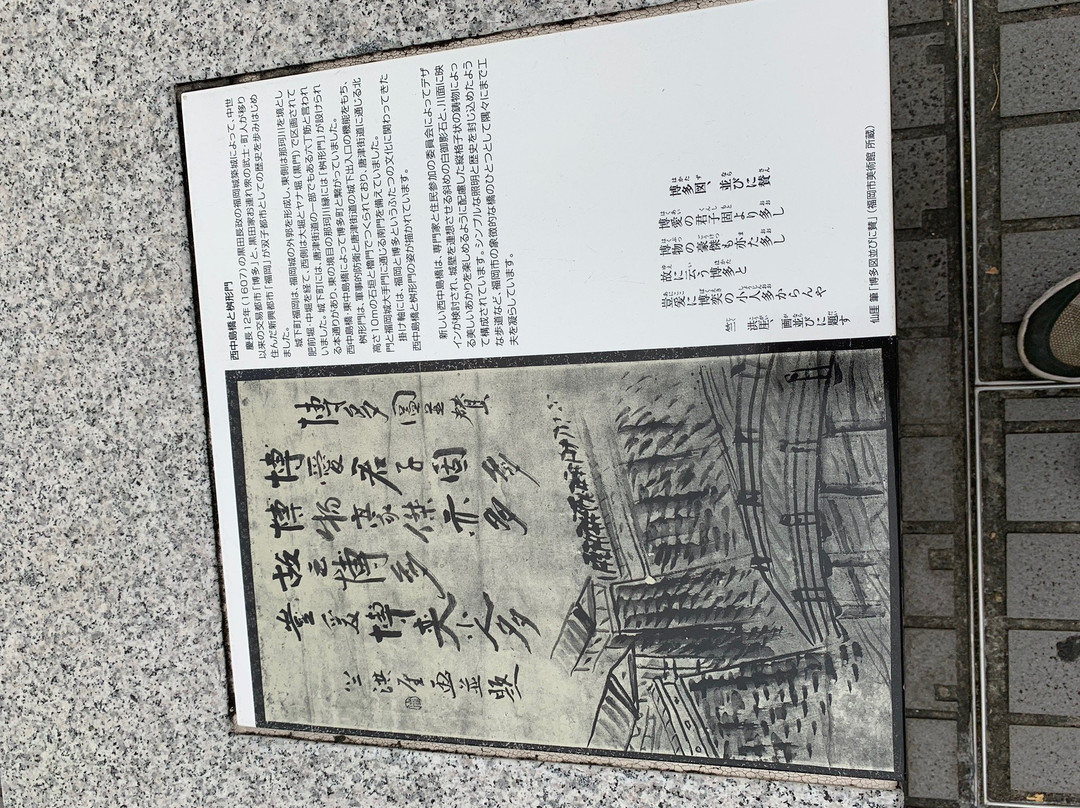 西中島橋と枡形門
慶長12年(1607)の黒田長政の福岡城築城によって、中世
以来の交易都市「博多」と、黒田家お連れ衆の武士・町人が移り
住んだ新興都市「福岡」が双子都市としての歴史を歩みはじめ
ました。
城下町福岡は、福岡城の外郭を形成し、東側は那珂川を境とし
肥前堀・中堀を経て、西側は大堀とヤナ堀(黒門)で区画されて
いました。城下町には、唐津街道の一部でもある六丁筋と言われ
る本通りがあり、東の境目の那珂川縁には「枡形門」が設けられ
西中島橋・東中島橋によって博多町と繋がっていました。
枡形門は、軍事的防衛と唐津街道の城下出入口の機能をもち、
高さ10mの石垣と櫓門でつくられており、唐津街道に通じる北
門と福岡城大手門に通じる南門を備えていました。
掛け軸には、福岡と博多というふたつの文化に関わってきた
西中島橋と枡形門の姿が描かれています。
新しい西中島橋は、専門家と住民参加の委員会によってデザ
インが検討され、城壁を連想させる斜めの白御影石と、川面に映
る美しいあかりを楽しめるように配慮した縦格子状の鋳物によっ
て構成されています。シンプルな照明と歴史を封じ込めたよう
な歩道など、福岡市の象徴的な橋のひとつとして隅々にまで工
夫を凝らしています。
博多図 並びに賛
博愛の君子固より多し
博物の豪傑も亦た多し
故に云う博多と
豈愛に博奕の小人多からんや
竺 洪厓、画並びに題す
仙厓 筆「博多図並びに賛」(福岡市美術館 所蔵)
博多圖並賛
博愛君子固多
博物豪傑亦多
故云博多
豈愛博奕小人多
竺洪厓画並題